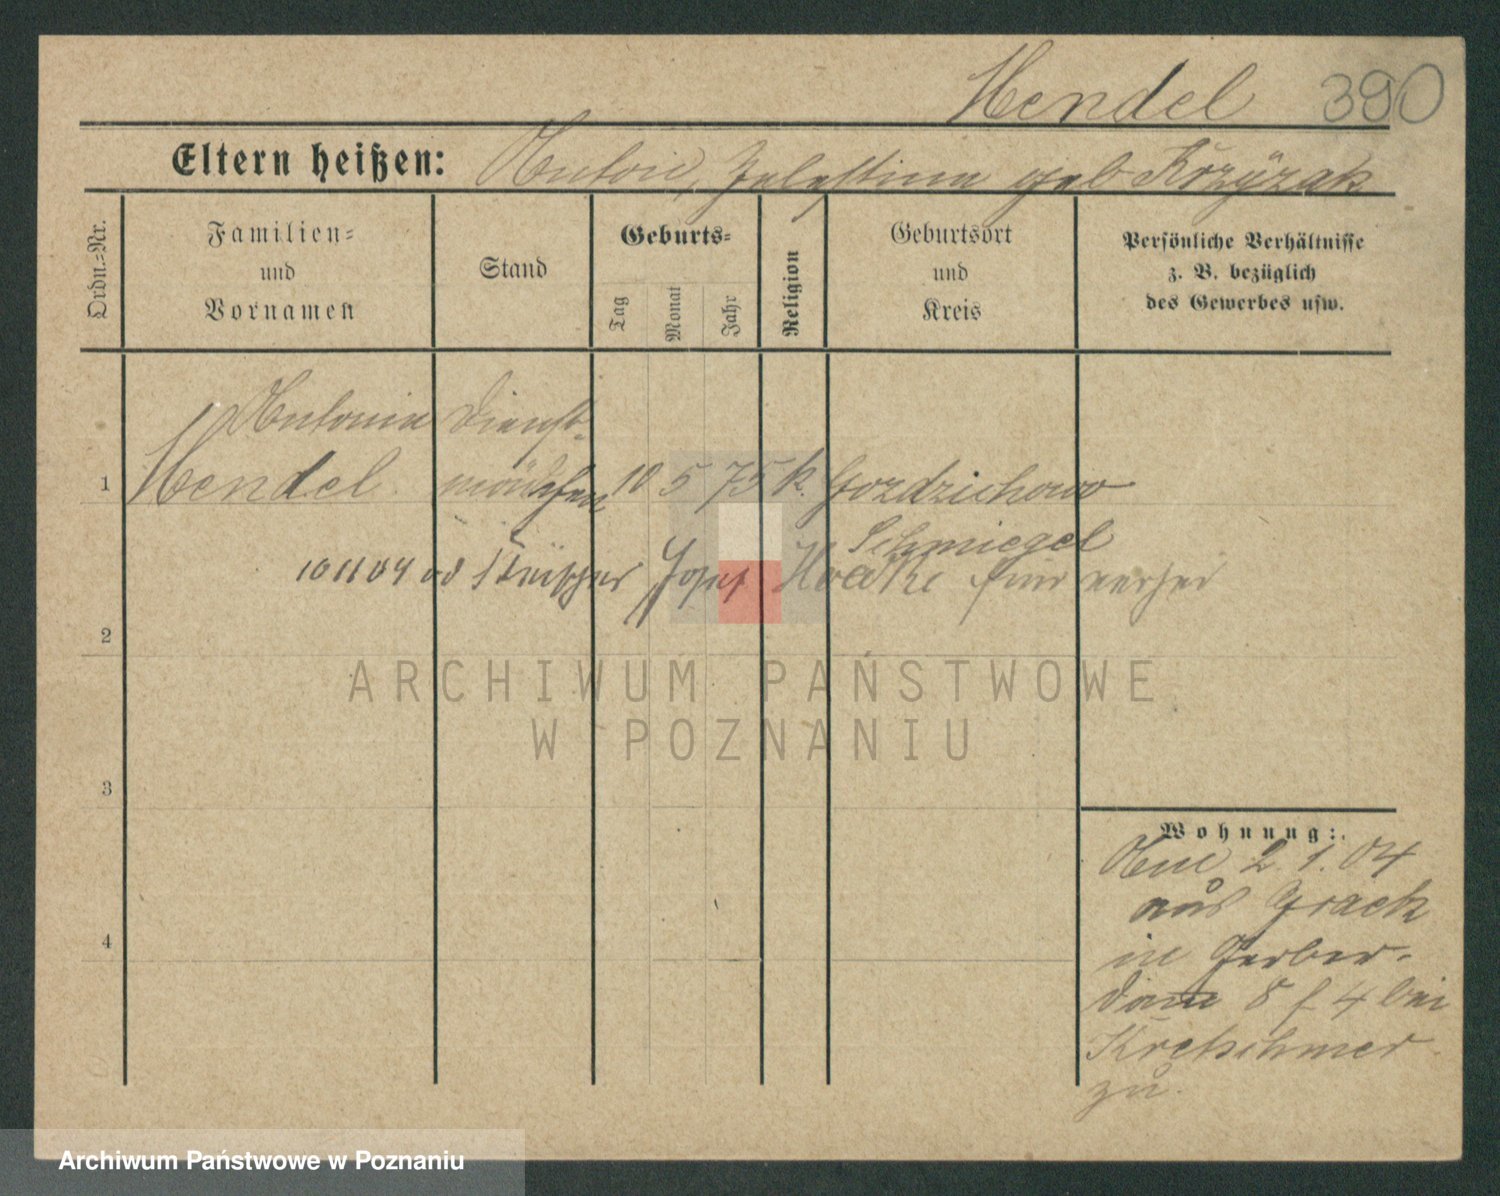 Hendel 390
Eltern heißen: Anton, Zelestina geb Krzyzak
Ordn.-Nr.
Familien-
und
Vornamen
Stand
Geburts-
Tag
Monat
Jahr
Religion
Geburtsort
und
Kreis
Persönliche Verhältnisse
z. B. bezüglich
des Gewerbes usw.
Antonie Dienst-
1 Hendel mädchen 10 5 75 k. Gozdzichowo
Schmiegel
10 11 04 Josef
2
3
4
Wohnung:
Am 2.1.04
aus
in Gerber-
damm 8 4 bei
Kretschmer
zu.
ARCHIWUM PAŃSTWOWE
W POZNANIU
Archiwum Państwowe w Poznaniu